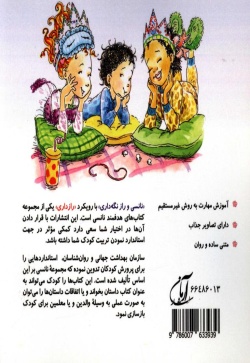 آموزش مهارت به روش غیرمستقیم
دارای تصاویر جذاب
متنی ساده و روان
«نانسی و راز نگه‌داری» با رویکرد «رازداری» یکی از مجموعه
کتاب‌های هدفمند نانسی است. این انتشارات با قرار دادن
آن‌ها در اختیار شما سعی دارد کمکی مؤثر در جهت
استاندارد نمودن تربیت کودک شما داشته باشد.
سازمان بهداشت جهانی و روان‌شناسان، استانداردهایی را
برای پرورش کودکان تدوین نموده که مجموعهٔ نانسی بر این
اساس تألیف شده است. این کتاب‌ها را کودک می‌تواند به
عنوان کتاب داستان بخواند و یا اتفاقات داستان‌ها را می‌توان
به صورت عملی به وسیلهٔ والدین و یا معلمین برای کودک
بازسازی نمود.
۶۶۴۸۶۰۱۳
9 786007 633939